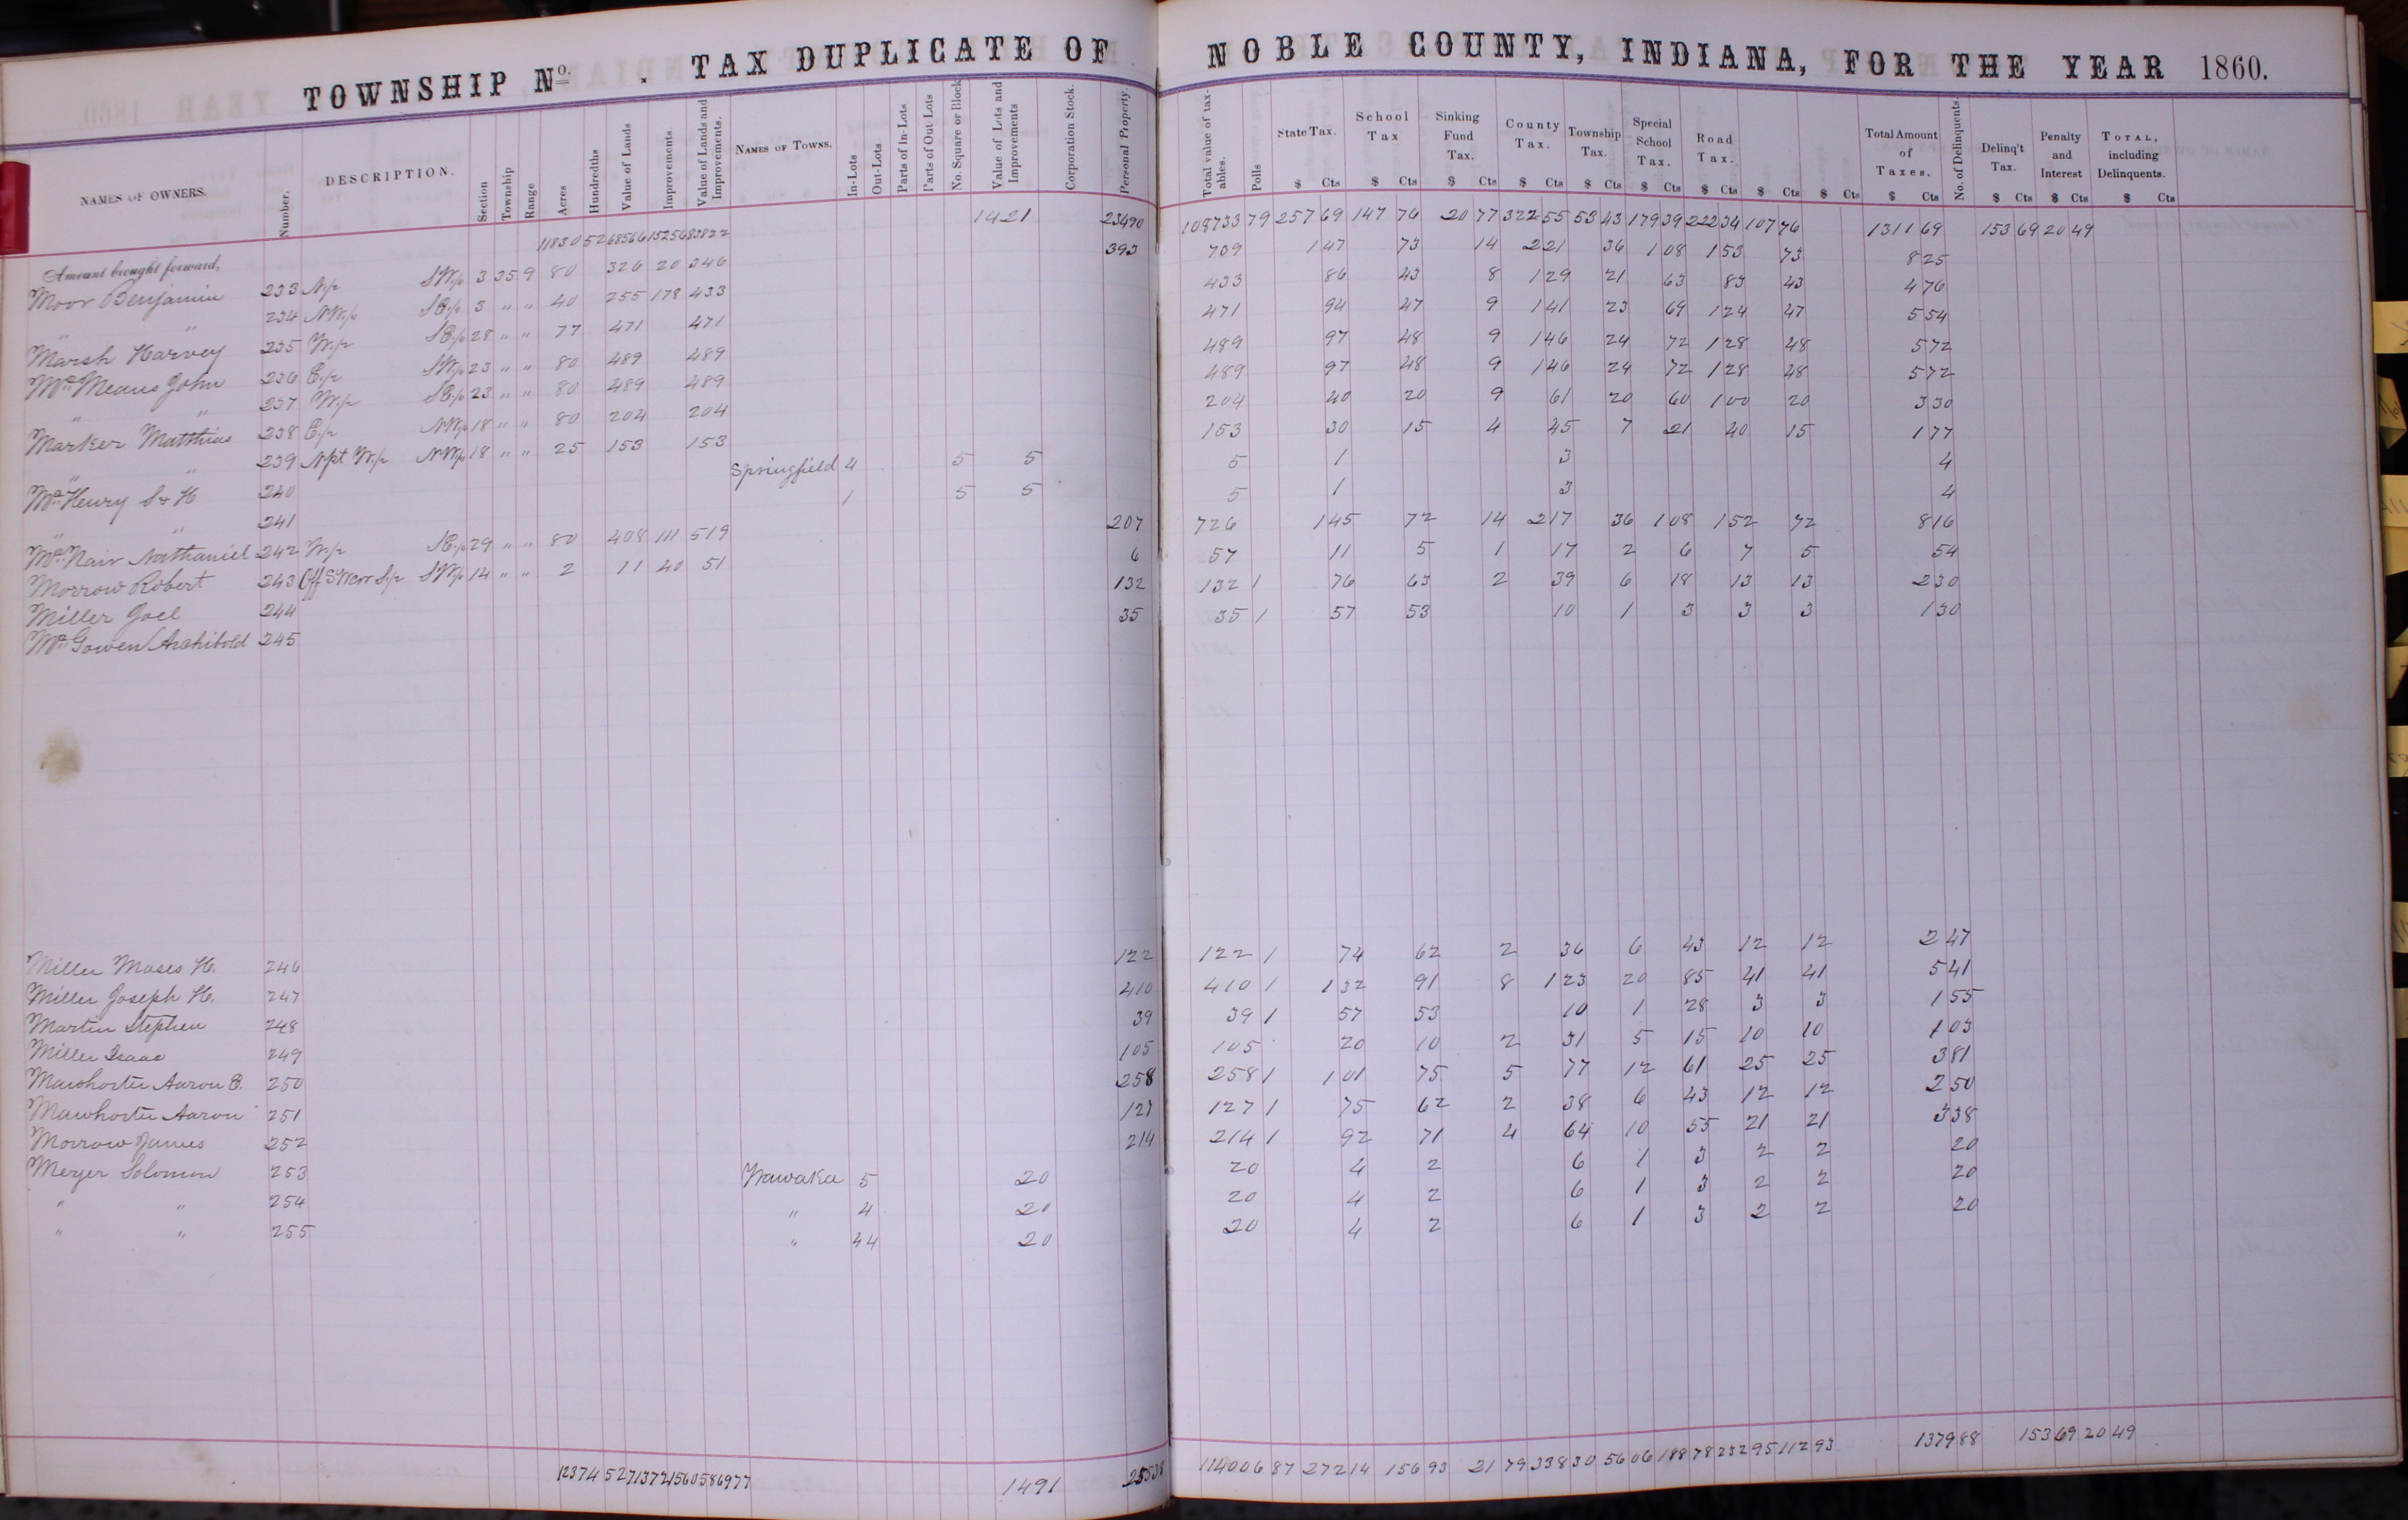 TOWNSHIP No. . TAX DUPLICATE OF NOBLE COUNTY, INDIANA, FOR THE YEAR 1860.
NAMES OF OWNERS. Number. DESCRIPTION. Section Township Range Acres Hundredths Value of Lands Improvements. Value of Lands and Improvements. NAMES OF TOWNS. In-Lots Out-Lots Parts of In-Lots Parts of Out Lots No. Square or Block Value of Lots and Improvements Corporation Stock. Personal Property. Total value of taxables. Polls State Tax. School Tax Sinking Fund Tax. County Tax. Township Tax. Special School Tax. Road Tax. Total Amount of Taxes. No. of Delinquents. Delinq't Tax. Penalty and Interest TOTAL, including Delinquents.
$ Cts $ Cts $ Cts $ Cts $ Cts $ Cts $ Cts $ Cts $ Cts $ Cts $ Cts $ Cts $ Cts
Amount brought forward, 11830 52 68566 15256 83822 1421 23490 108733 79 257 69 147 76 20 77 322 55 53 43 179 39 222 34 107 76 1311 69 153 69 20 49
Moor Benjamin 233 N.½ S.W.¼ 3 35 9 80 326 20 346 393 709 1 47 73 14 2 21 36 1 08 1 53 73 8 25
" " 234 N.W.¼ S.E.¼ 3 " " 40 255 178 433 433 86 43 8 1 29 21 63 83 43 4 76
Marsh Harvey 235 W.½ S.E.¼ 28 " " 77 471 471 471 94 47 9 1 41 23 69 1 24 47 5 54
McMeans John 236 E.½ S.W.¼ 23 " " 80 489 489 489 97 48 9 1 46 24 72 1 28 48 5 72
" " 237 W.½ S.E.¼ 23 " " 80 489 489 489 97 48 9 1 46 24 72 1 28 48 5 72
Marker Matthias 238 E.½ N.W.¼ 18 " " 80 204 204 204 40 20 9 61 20 60 1 00 20 3 30
" " 239 N.pt W.½ N.W.¼ 18 " " 25 153 153 153 30 15 4 45 7 21 40 15 1 77
McHenry S & H 240 Springfield 4 5 5 5 1 3 4
" " 241 1 5 5 5 1 3 4
McNair Nathaniel 242 W.½ S.E.¼ 29 " " 80 408 111 519 207 726 1 45 72 14 2 17 36 1 08 1 52 72 8 16
Morrow Robert 243 Off S.W cor S.½ S.W.¼ 14 " " 2 11 40 51 6 57 11 5 1 17 2 6 7 5 54
Miller Joel 244 132 132 1 76 63 2 39 6 18 13 13 2 30
McGowen Archibold 245 35 35 1 57 53 10 1 3 3 3 1 30
Miller Moses H. 246 122 122 1 74 62 2 36 6 43 12 12 2 47
Miller Joseph H. 247 410 410 1 1 32 91 8 1 23 20 85 41 41 5 41
Martin Stephen 248 39 39 1 57 53 10 1 28 3 3 1 55
Miller Isaac 249 105 105 20 10 2 31 5 15 10 10 1 03
Mawhorter Aaron B. 250 258 258 1 1 01 75 5 77 12 61 25 25 3 81
Mawhorter Aaron 251 127 127 1 75 62 2 38 6 43 12 12 2 50
Morrow James 252 214 214 1 92 71 4 64 10 55 21 21 3 38
Meyer Solomon 253 Wawaka 5 20 20 4 2 6 1 3 2 2 20
" " 254 " 4 20 20 4 2 6 1 3 2 2 20
" " 255 " 44 20 20 4 2 6 1 3 2 2 20
12374 52 71372 15605 86977 1491 25538 114006 87 272 14 156 93 21 79 338 30 56 06 188 78 232 95 112 93 1379 88 153 69 20 49